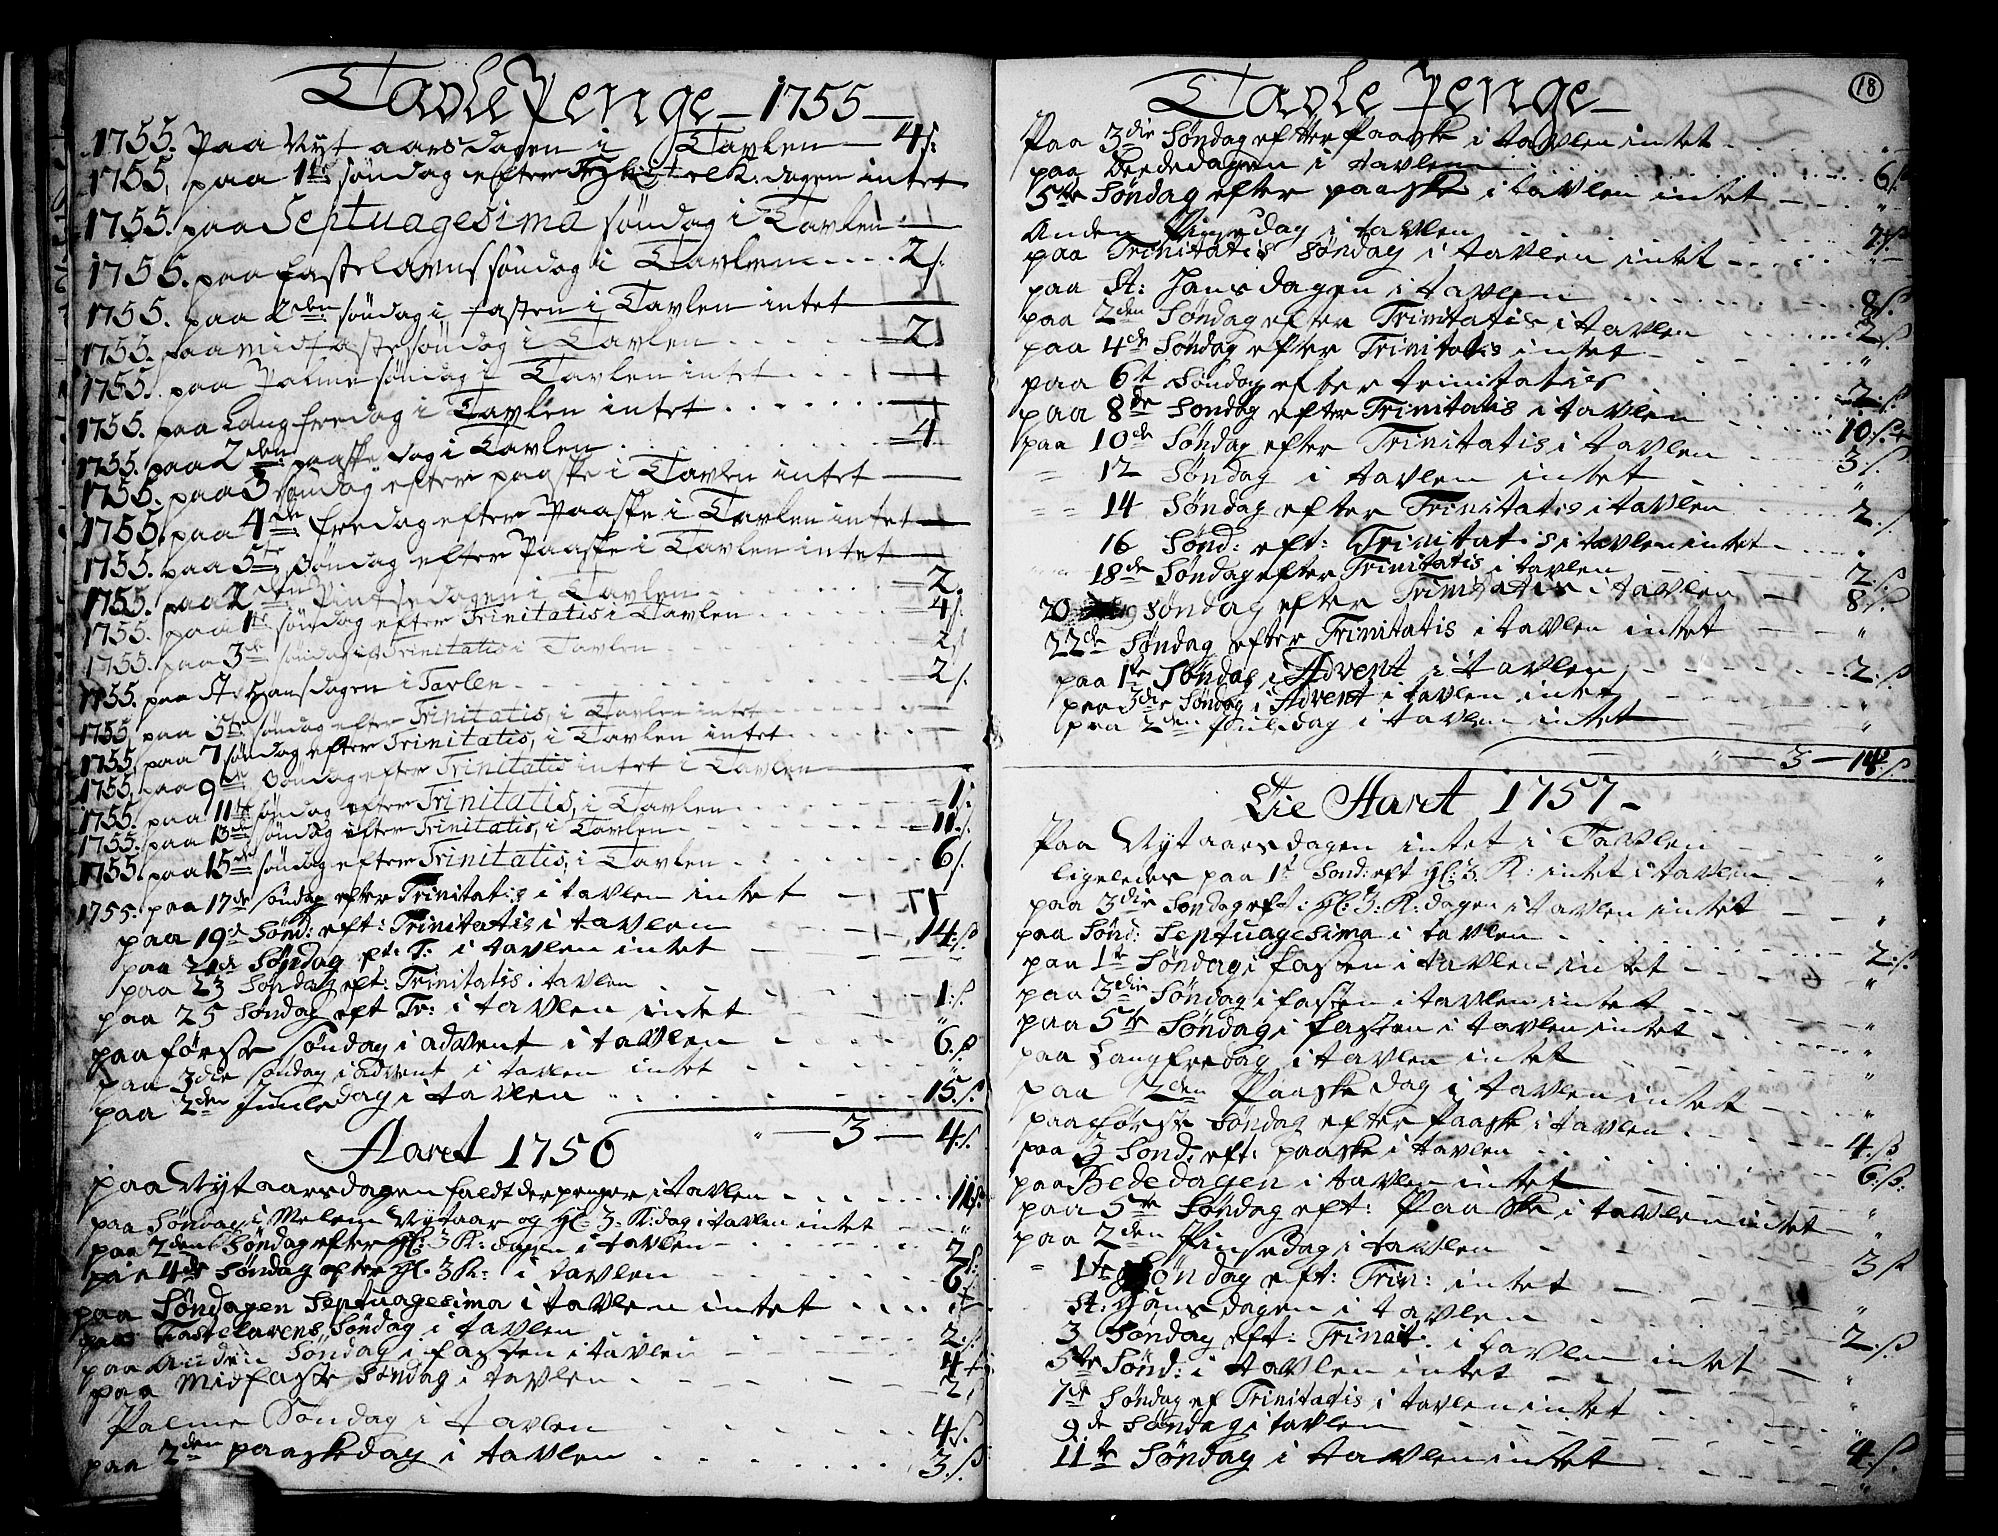 Tavle Penge 1755
1755. Paa Nyt aarsdagen i Tavlen 4 s:
1755. paa 1te søndag efter H 3 K: dagen intet
1755. paa Septuagesima søndag i Tavlen
1755. paa fastelavens søndag i Tavlen 2 s.
1755. paa 2den søndag i fasten i Tavlen intet
1755. paa midfaste søndag i Tavlen 2
1755. paa Palme søndag i Tavlen intet
1755. paa Langfredag i Tavlen intet
1755. paa 2den paaske dag i Tavlen 4
1755. paa 3 søndag efter paaske i Tavlen intet
1755. paa 4de fredag efter Paaske i Tavlen intet
1755. paa 5te Søndag efter Paaske i Tavlen intet
1755. paa 2den Pintsedagen i Tavlen 2
1755. paa 1te søndag efter Trinitatis i Tavlen 4 s.
1755. paa 3de søndag Trinitatis i Tavlen 2 s
1755. paa St: Hansdagen i Tavlen 2 s.
1755. paa 5te søndag efter Trinitatis, i Tavlen intet
1755. paa 7 søndag efter Trinitatis, i Tavlen intet
1755. paa 9de Søndag efter Trinitatis intet i Tavlen
1755. paa 11te søndag efter Trinitatis, i Tavlen 1 s.
1755. paa 13de søndag efter Trinitatis, i Tavlen 11 s.
1755. paa 15de søndag efter Trinitatis, i Tavlen 6 s.
1755. paa 17de søndag efter Trinitatis i tavlen intet
paa 19d Sønd: eft: Trinitatis i tavlen 14 s
paa 21de Søndag eft: T: i tavlen intet
paa 23 Søndag eft: Trinitatis i tavlen 1 s.
paa 25 Søndag eft Tr: i tavlen intet "
paa første Søndag i advent i tavlen 6 s
paa 3die søndag i advent i tavlen intet "
paa 2den Juuledag i tavlen 15 s.
" — 3 — 4 s.
Aaret 1756
paa Nytaarsdagen faldt der penger i tavlen 11 s
paa Søndag i Melem Nytaar og Hl: 3: K: dag i tavlen intet "
paa 2den Søndag efter Hl: 3 K: dagen i tavlen 2 s:
paa 4de Søndag efter Hl: 3 K: i tavlen 6
paa Søndagen Septuagesima i tavlen intet
paa Fastelavens Søndag i tavlen 2 s.
paa Anden Søndag i fasten i tavlen 4
paa Midfaste Søndag i tavlen 2
Palme Søndag i tavlen 4 s.
paa 2den paaskedag i tavlen 3 s.
18
Tavle Penge
Paa 3die Søndag efter Paaske i tavlen intet "
paa Beededagen i tavlen 6 s
5te Søndag efter paaske i tavlen intet "
Anden Pinsedag i tavlen 7 s
paa Trinitatis Søndag i tavlen intet "
paa St: Hansdagen i tavlen 8 s.
paa 2den Søndag efter Trinitatis i tavlen 2 s.
paa 4de Søndag efter Trinitatis intet "
paa 6t Søndag efter trinitatis 2 s
paa 8de Søndag efter Trinitatis i tavlen 10 s.
paa 10de Søndag efter Trinitatis i tavlen 3 s.
" 12 Søndag i tavlen intet "
" " 14 Søndag efter Trinitatis i tavlen 2 s
16 Sønd: eft: Trinitatis i tavlen intet "
18de Søndag efter Trinitatis i tavlen 2 s.
20 Søndag efter Trinitatis i tavlen 8 s.
22de Søndag efter Trinitatis i tavlen intet "
paa 1te Søndag i Advent i tavlen 2 s
paa 3die Søndag i Advent i tavlen intet "
paa 2den Juuledag i tavlen intet "
" — 3 — 14 s
Die Aaret 1757
Paa Nytaarsdagen intet i Tavlen "
ligeledes paa 1st Sønd: eft Hl: 3. K: intet i tavlen "
paa 3die Søndag eft: Hl: 3: K: dagen i tavlen intet "
paa Sønd: Septuagesima i tavlen 2 s.
paa 1te Søndag i fasten i tavlen intet "
paa 3die Søndag i fasten i tavlen intet "
paa 5te Søndag i fasten i tavlen intet "
paa Langfredag i tavlen intet "
paa 2den Paaskedag i tavlen intet "
paa første Søndag efter Paaske i tavlen 4 s
paa 3 Sønd: eft: paaske i tavlen 6 s:
paa Bededagen i tavlen intet "
paa 5te Søndag eft: Paaske i tavlen intet "
paa 2den Pinsedag i tavlen 3 s
" 1te Søndag eft: Trin: intet "
St: Hansdagen i tavlen 2 s
3 Søndag eft: Trinit: i tavlen intet "
5te Sønd: i tavlen intet "
7de Søndag ef Trinitatis i tavlen intet "
9de Søndag i tavlen 4 s
11te Søndag i tavlen intet "